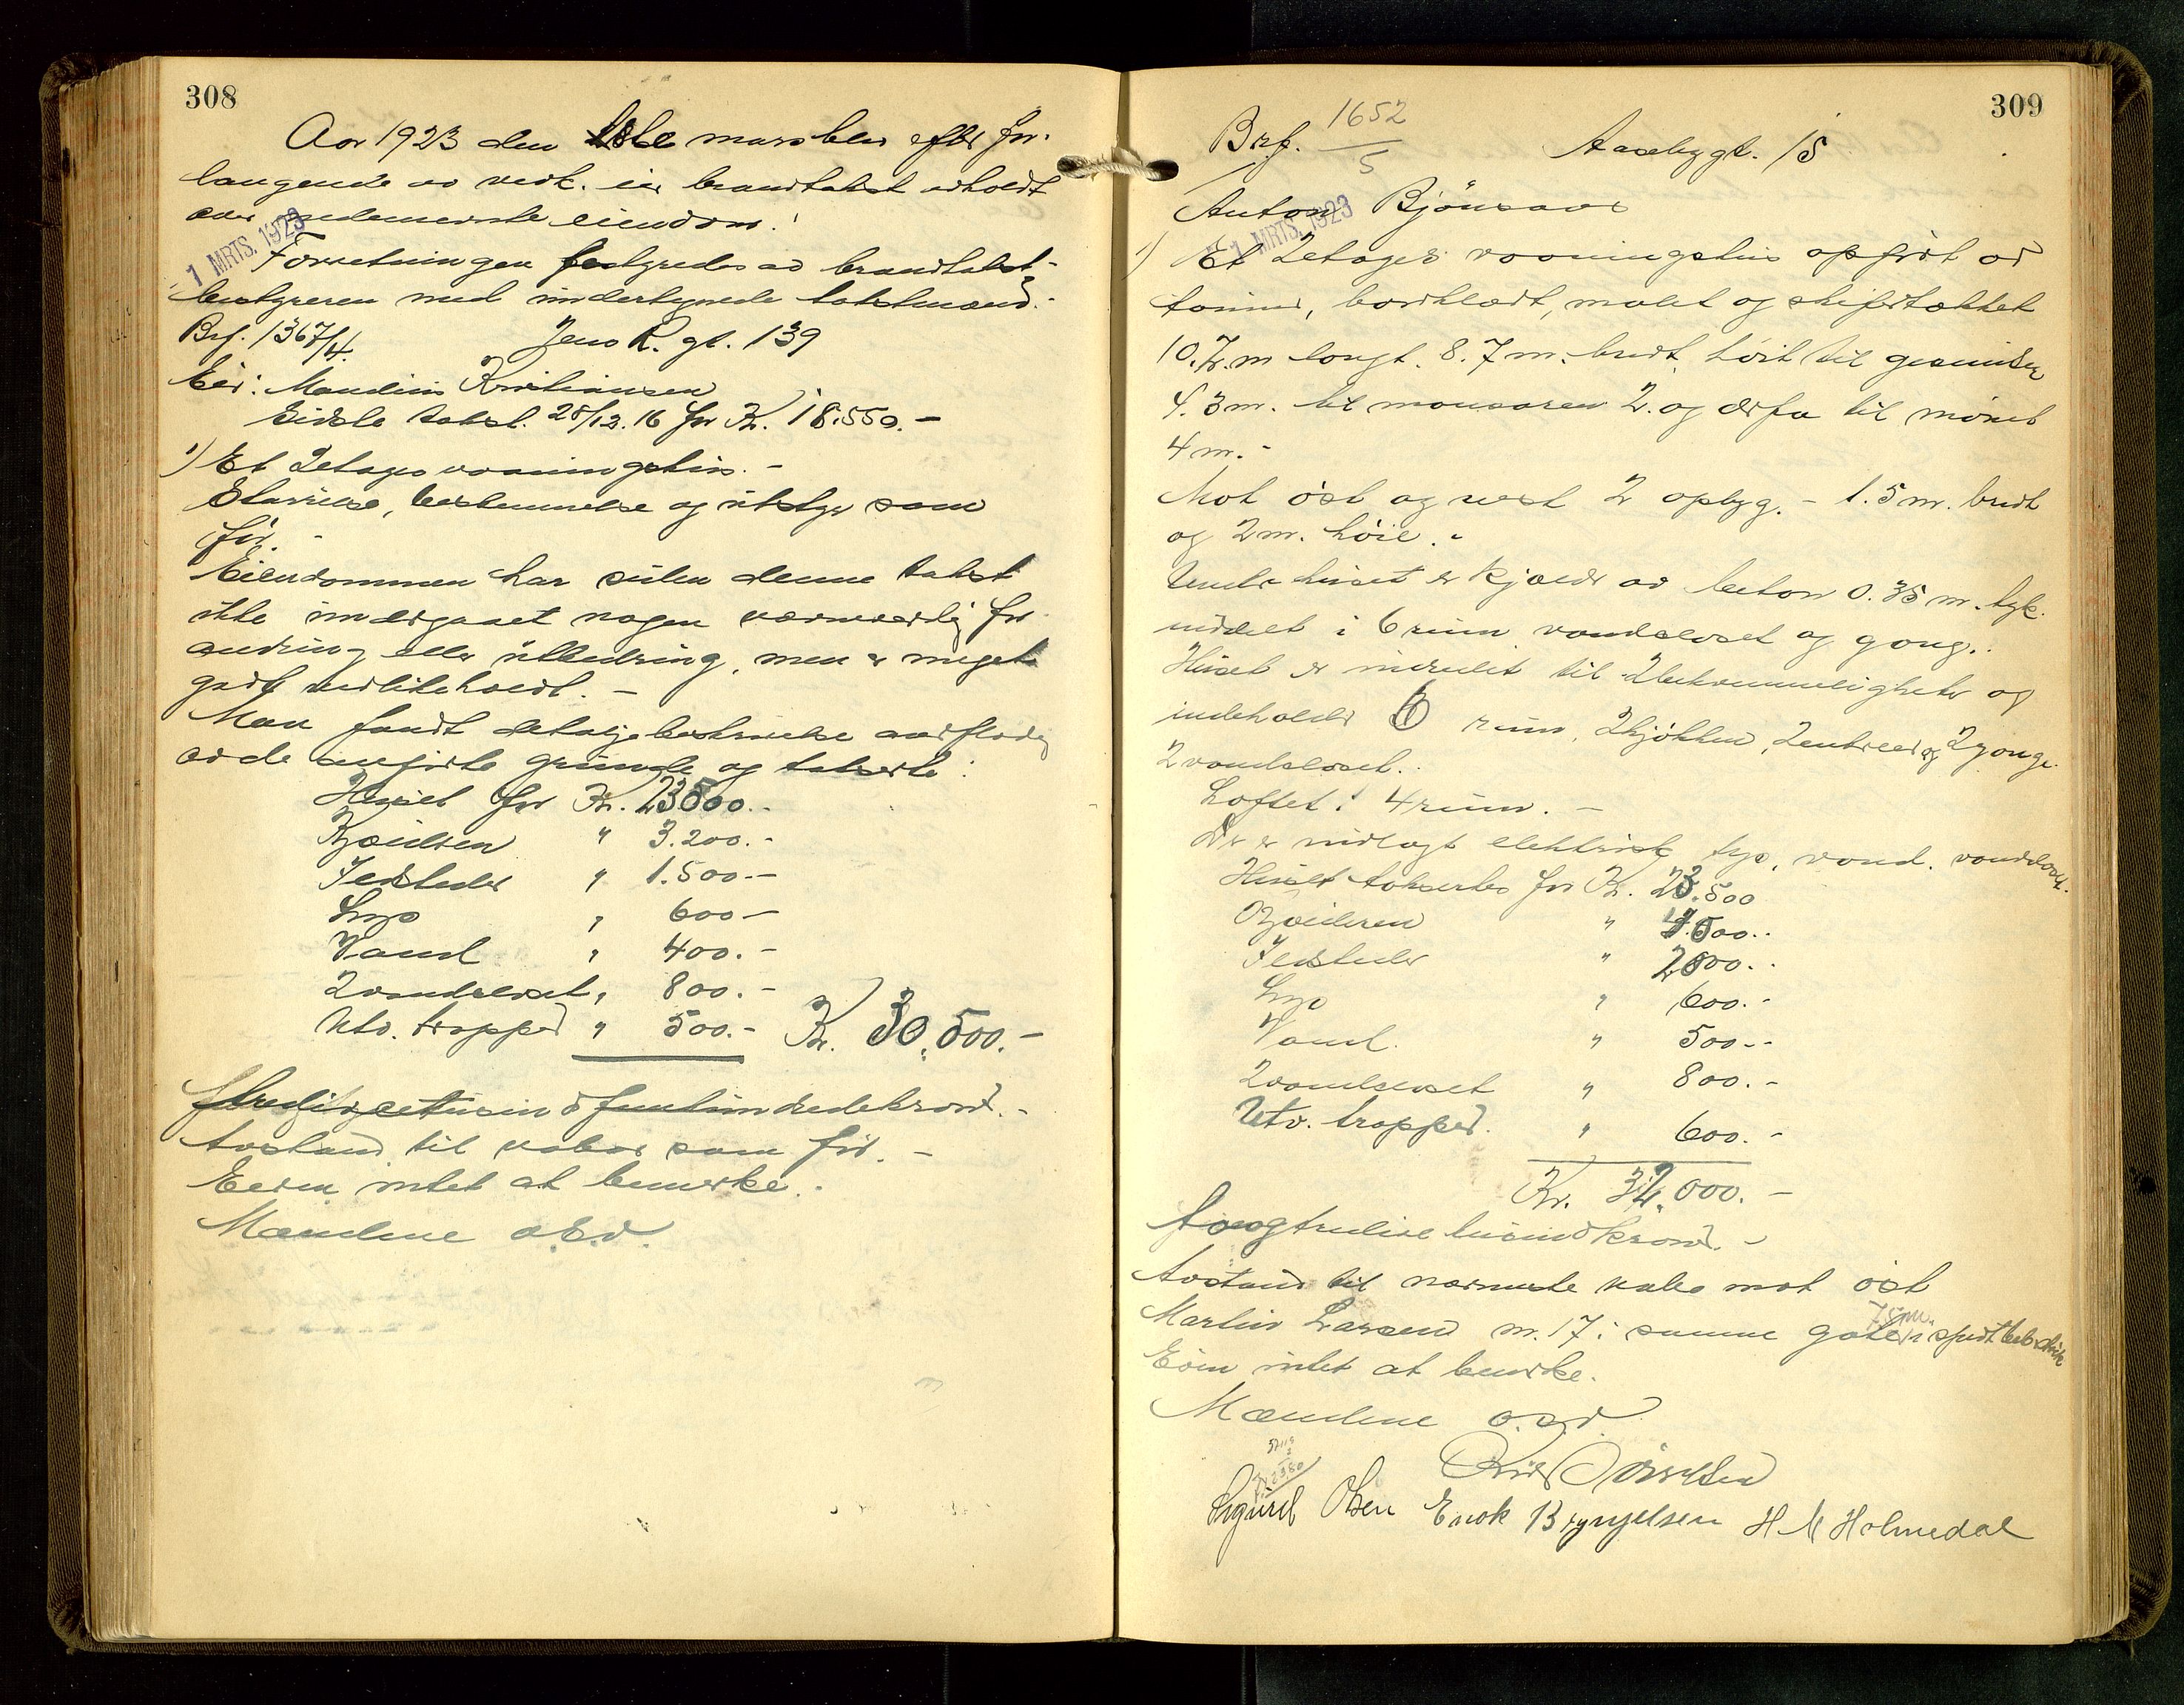 308
Aar 1923 den 1ste mars blev efter for-
langende av vedk. eier brandtakst avholdt
over nedennævnte eiendom:
1 MRTS. 1923
Forretningen bestyredes av brandtakst-
bestyreren med undertegnede takstmænd.-
Brf. 1367/4. Jens Z. gt. 139
Eier: Maudius Kristiansen
Sidste takst. 28/12.16 for Kr. 18.550.-
1) Et 2etages vaaningshus.-
Størrelse, bestemmelse og utstyr som
før.-
Eiendommen har siden denne takst
ikke undergaaet nogen nævneværdig for-
andring eller utbedring, men er meget
godt vedlikeholdt.-
Man fandt detaljebeskrivelse overflødig
av de anførte grunde og takserte:
Huset for Kr. 23500.-
Kjælderen " 3.200.-
Ildsteder " 1.500.-
Lys " 600-
Vand " 400.-
2 vandcloset " 800.-
Utv. trapper " 500.- Kr. 30.500.-
fem hundrede kroner.-
Avstand til nabo som før.-
Eieren intet at bemerke.-
Mændene o.s.v.
309
Brf. 1652/5 Aasebygt. 15
Anton Bjønsaas
1 MRTS. 1923
1) Et 2etages vaaningshus opført av
tømmer, bordklædt, malet og skifertækket
10.7 m langt. 8.7 m. bredt, høit til gesimsen
4.3 m. til mansarden 2. og derfra til mønet
4 m.-
Mot øst og vest 2 opbyg.- 1.5 m. bredt
og 2 m. høie.-
Under huset er kjælder av beton 0.35 m. tyk.
inddelt i 6 rum vandcloset og gang.
Huset er inredet til 2 bekvemmeligheter og
indeholder 6 rum, 2 kjøkken, 2 entreer og 2 gange.
2 vandcloset.
Loftet: 4 rum.-
Der er indlagt elektrisk lys, vand, vandcloset.
Huset takseres for Kr. 23.500
Kjælderen " 4.500..
Ildsteder " 2000..
Lys " 600.-
Vand. " 500.-
2 vandcloset " 800.-
Utv. trapper. " 600.-
Kr. 32.000.-
to og tredive tusind kroner.-
Avstand til nærmeste nabo mot øst
Martin Larsen nr. 17 i samme gate
Eieren intet at bemerke.
Mændene o.s.v.
Sigurd Olsen Enok Bryngelsen H M Holmedal